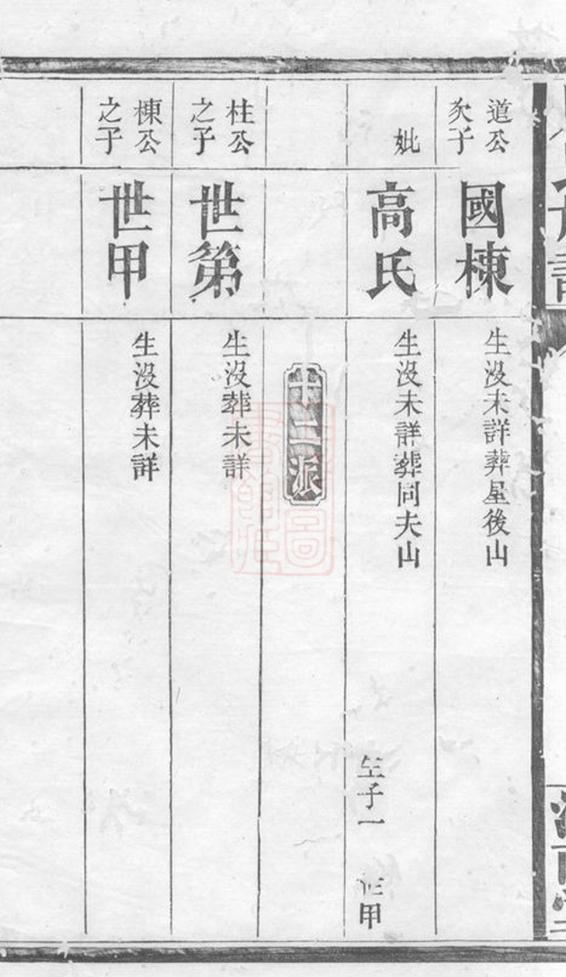 道公
次子
國棟
生沒未詳葬屋後山
妣
高氏
生沒未詳葬同夫山
生子一 世甲
十二派
柱公
之子
世第
生沒葬未詳
棟公
之子
世甲
生沒葬未詳